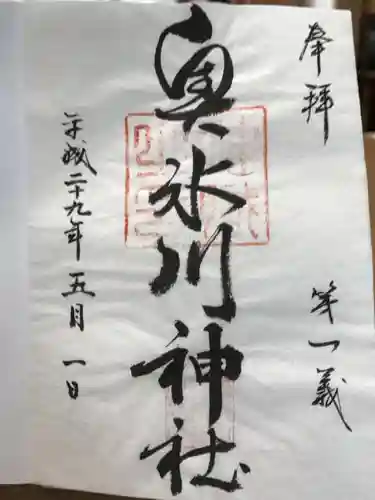 奉拝
第一義
奥氷川神社
平成二十九年五月一日